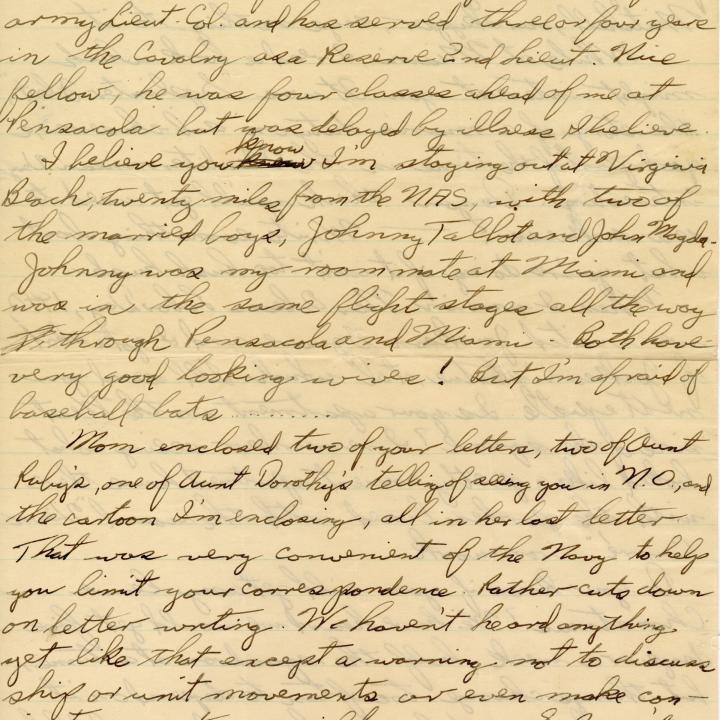 army Lieut. Col. and has served three or four years
in the Cavalry as a Reserve 2nd Lieut. Nice
fellow, he was four classes ahead of me at
Pensacola but was delayed by illness I believe.
know
I believe you knew I'm staying out at Virginia
Beach, twenty miles from the NAS, with two of
the married boys, Johnny Talbot and John Magda-
Johnny was my room mate at Miami and
was in the same flight stages all the way
through Pensacola and Miami - Both have
very good looking wives! But I'm afraid of
baseball bats ..........
Mom enclosed two of your letters, two of Aunt
Ruby's, one of Aunt Dorothy's telling of seeing you in N.O., and
the cartoon I'm enclosing, all in her last letter
That was very convenient of the Navy to help
you limit your correspondence. Rather cuts down
on letter writing. We haven't heard anything
yet like that except a warning not to discuss
ship or unit movements or even make con-